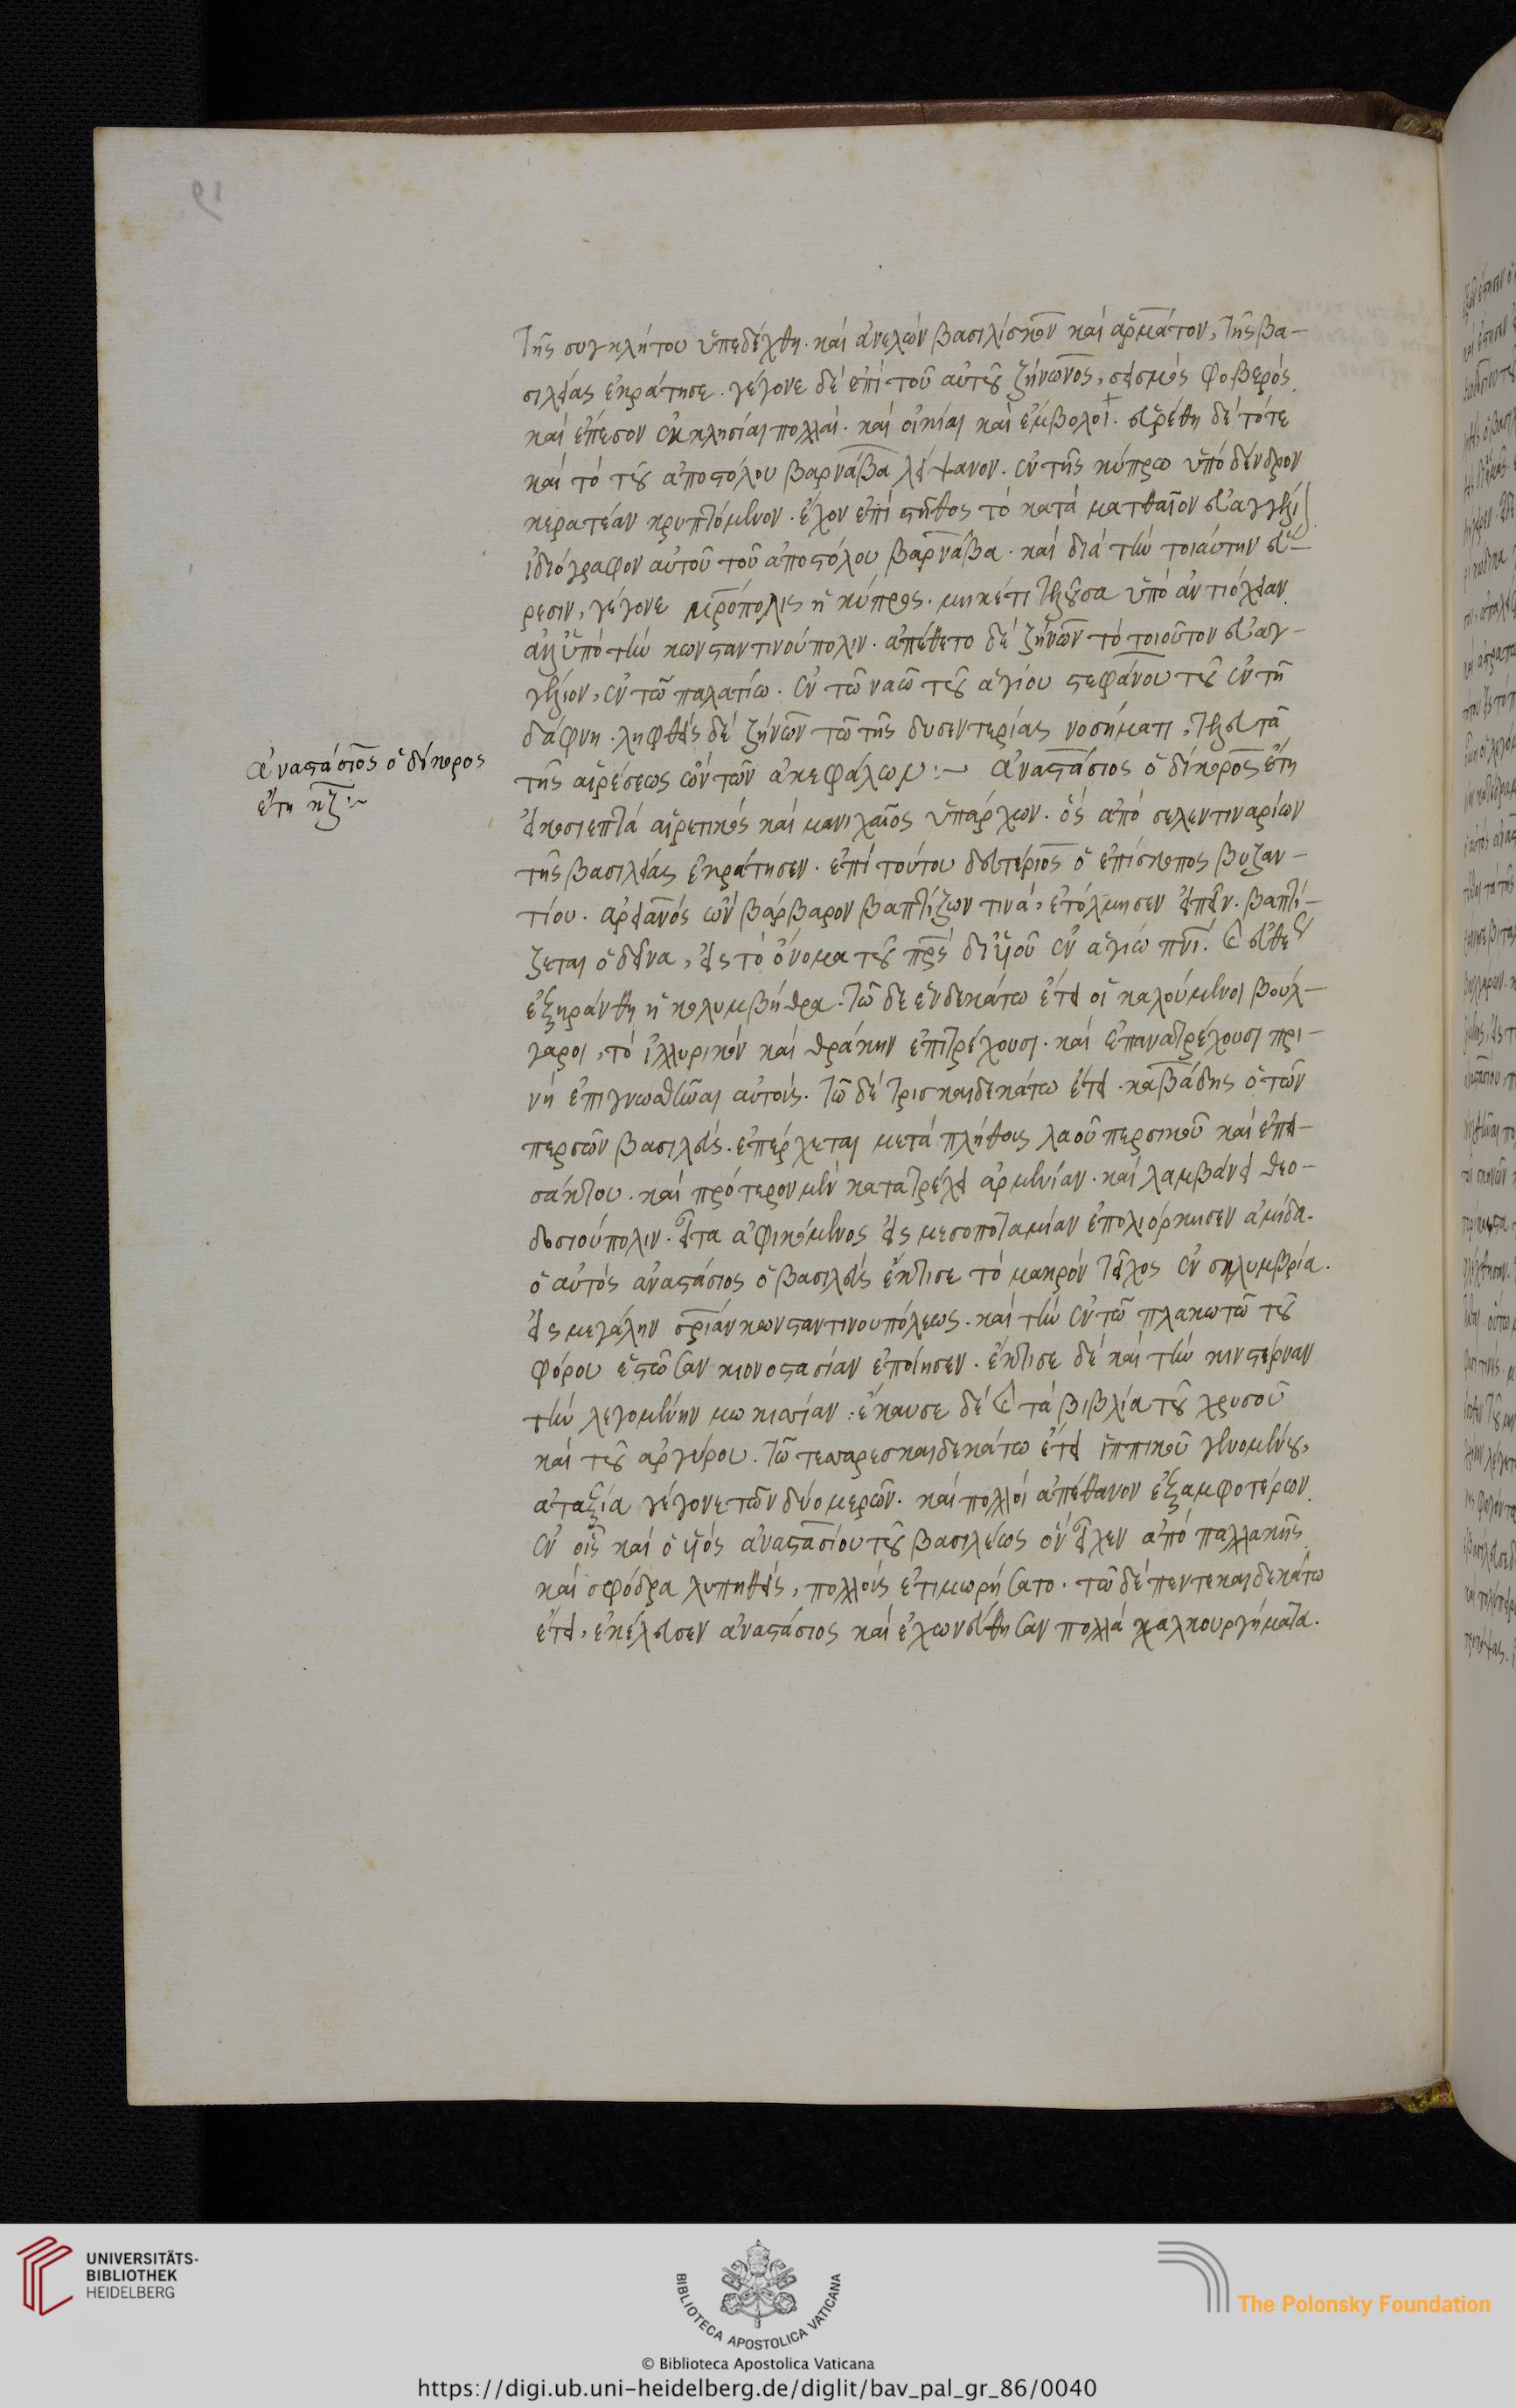 τῆς συγκλήτου ὑπεδέχθη. καὶ ἀνελὼν βασιλίσκον καὶ ἁρμάτον, τῆς βα-
σιλείας ἐκράτησε. γέγονε δὲ ἐπὶ τοῦ αὐτοῦ ζήνωνος, σεισμὸς φοβερός.
καὶ ἔπεσον ἐκκλησίαι πολλαί. καὶ οἰκίαι καὶ ἔμβολοι. εὑρέθη δὲ τότε
καὶ τὸ τοῦ ἀποστόλου βαρνάβα λείψανον. ἐν τῆς κύπρω ὑπὸ δένδρον
κερατέαν κρυπτόμενον. ἔχον ἐπὶ στῆθος τὸ κατὰ ματθαῖον εὐαγγέλι
ἰδιόγραφον αὐτοῦ τοῦ ἀποστόλου βαρνάβα. καὶ διὰ τὴν τοιαύτην εὕ-
ρεσιν, γέγονε μρόπολις ἡ κύπρος. μηκέτι τελοῦσα ὑπὸ ἀντιόχειαν.
ἀλλ' ὑπὸ τὴν κωνσταντινούπολιν. ἀπέθετο δὲ ζήνων τὸ τοιοῦτον εὐαγ-
γέλιον, ἐν τῶ παλατίω. ἐν τῶ ναῶ τοῦ ἁγίου στεφάνου τοῦ ἐν τῆ
δάφνη. ληφθεὶς δὲ ζήνων τῶ τῆς δυσεντερίας νοσήματι, τελευτᾶ
ἀναστάσιος ὁ δίκορος
ἔτη κζ:~
τῆς αἱρέσεως ὢν τῶν ἀκεφάλων:~ ἀναστάσιος ὁ δίκορος ἔτη
εἰκοσιεπτὰ αἱρετικὸς καὶ μανιχαῖος ὑπάρχων. ὃς ἀπὸ σελεντιναρίων
τῆς βασιλείας ἐκράτησεν. ἐπὶ τούτου δευτέριος ὁ ἐπίσκοπος βυζαν-
τίου. ἀρειανὸς ὢν βάρβαρον βαπτίζων τινά, ἐτόλμησεν εἰπεῖν. βαπτί-
ζεται ὁ δεῖνα, εἰς τὸ ὄνομα τοῦ πρς δι' υἱοῦ ἐν ἁγίω πνι. καὶ εὐθὺς
ἐξηράνθη ἡ κολυμβήθρα. τῶ δε ἑνδεκάτω ἔτει οἱ καλούμενοι βούλ-
γαροι, τὸ ἰλλυρικὸν καὶ θράκην ἐπιτρέχουσι. καὶ ἐπανατρέχουσι πρι-
νὴ ἐπιγνωσθῆναι αὐτούς. τῶ δὲ τρισκαιδεκάτω ἔτει. καβάδης ὁ τῶν
περσῶν βασιλεύς. ἐπέρχεται μετὰ πλήθους λαοῦ περσικοῦ καὶ ἐπει-
σάκτου. καὶ πρότερον μὲν κατατρέχει ἀρμενίαν. καὶ λαμβάνει θεο-
δοσιούπολιν. εἶτα ἀφικόμενος εἰς μεσοποταμίαν ἐπολιόρκησεν ἀμίδα.
ὁ αὐτὸς ἀναστάσιος ὁ βασιλεὺς ἔκτισε τὸ μακρὸν τεῖχος ἐν σηλυμβρία.
εἰς μεγάλην σριὰν κωνσταντινουπόλεως. καὶ τὴν ἐν τῶ πλακωτῶ τοῦ
φόρου ἑστῶσαν κιονοστασίαν ἐποίησεν. ἔκτισε δὲ καὶ τὴν κινστέρναν
τὴν λεγομένην μωκισίαν: ἔκαυσε δὲ καὶ τὰ βιβλία τοῦ χρυσοῦ
καὶ τοῦ ἀργύρου. τῶ τεσσαρεσκαιδεκάτω ἔτει ἱππικοῦ γενομένου,
ἀταξία γέγονε τῶν δύο μερῶν. καὶ πολλοὶ ἀπέθανον ἐξ ἀμφοτέρων.
ἐν οἷς καὶ ὁ υἱὸς ἀναστασίου τοῦ βασιλέως ὃν εἶχεν ἀπὸ παλλακῆς.
καὶ σφόδρα λυπηθεὶς, πολλοὺς ἐτιμωρήσατο. τῶ δὲ πεντεκαιδεκάτω
ἔτει, ἐκέλευσεν ἀναστάσιος καὶ ἐχωνεύθησαν πολλὰ χαλκουργήματα.
UNIVERSITÄTS-
BIBLIOTHEK
HEIDELBERG
BIBLIOTECA APOSTOLICA VATICANA
The Polonsky Foundation
© Biblioteca Apostolica Vaticana
https://digi.ub.uni-heidelberg.de/diglit/bav_pal_gr_86/0040